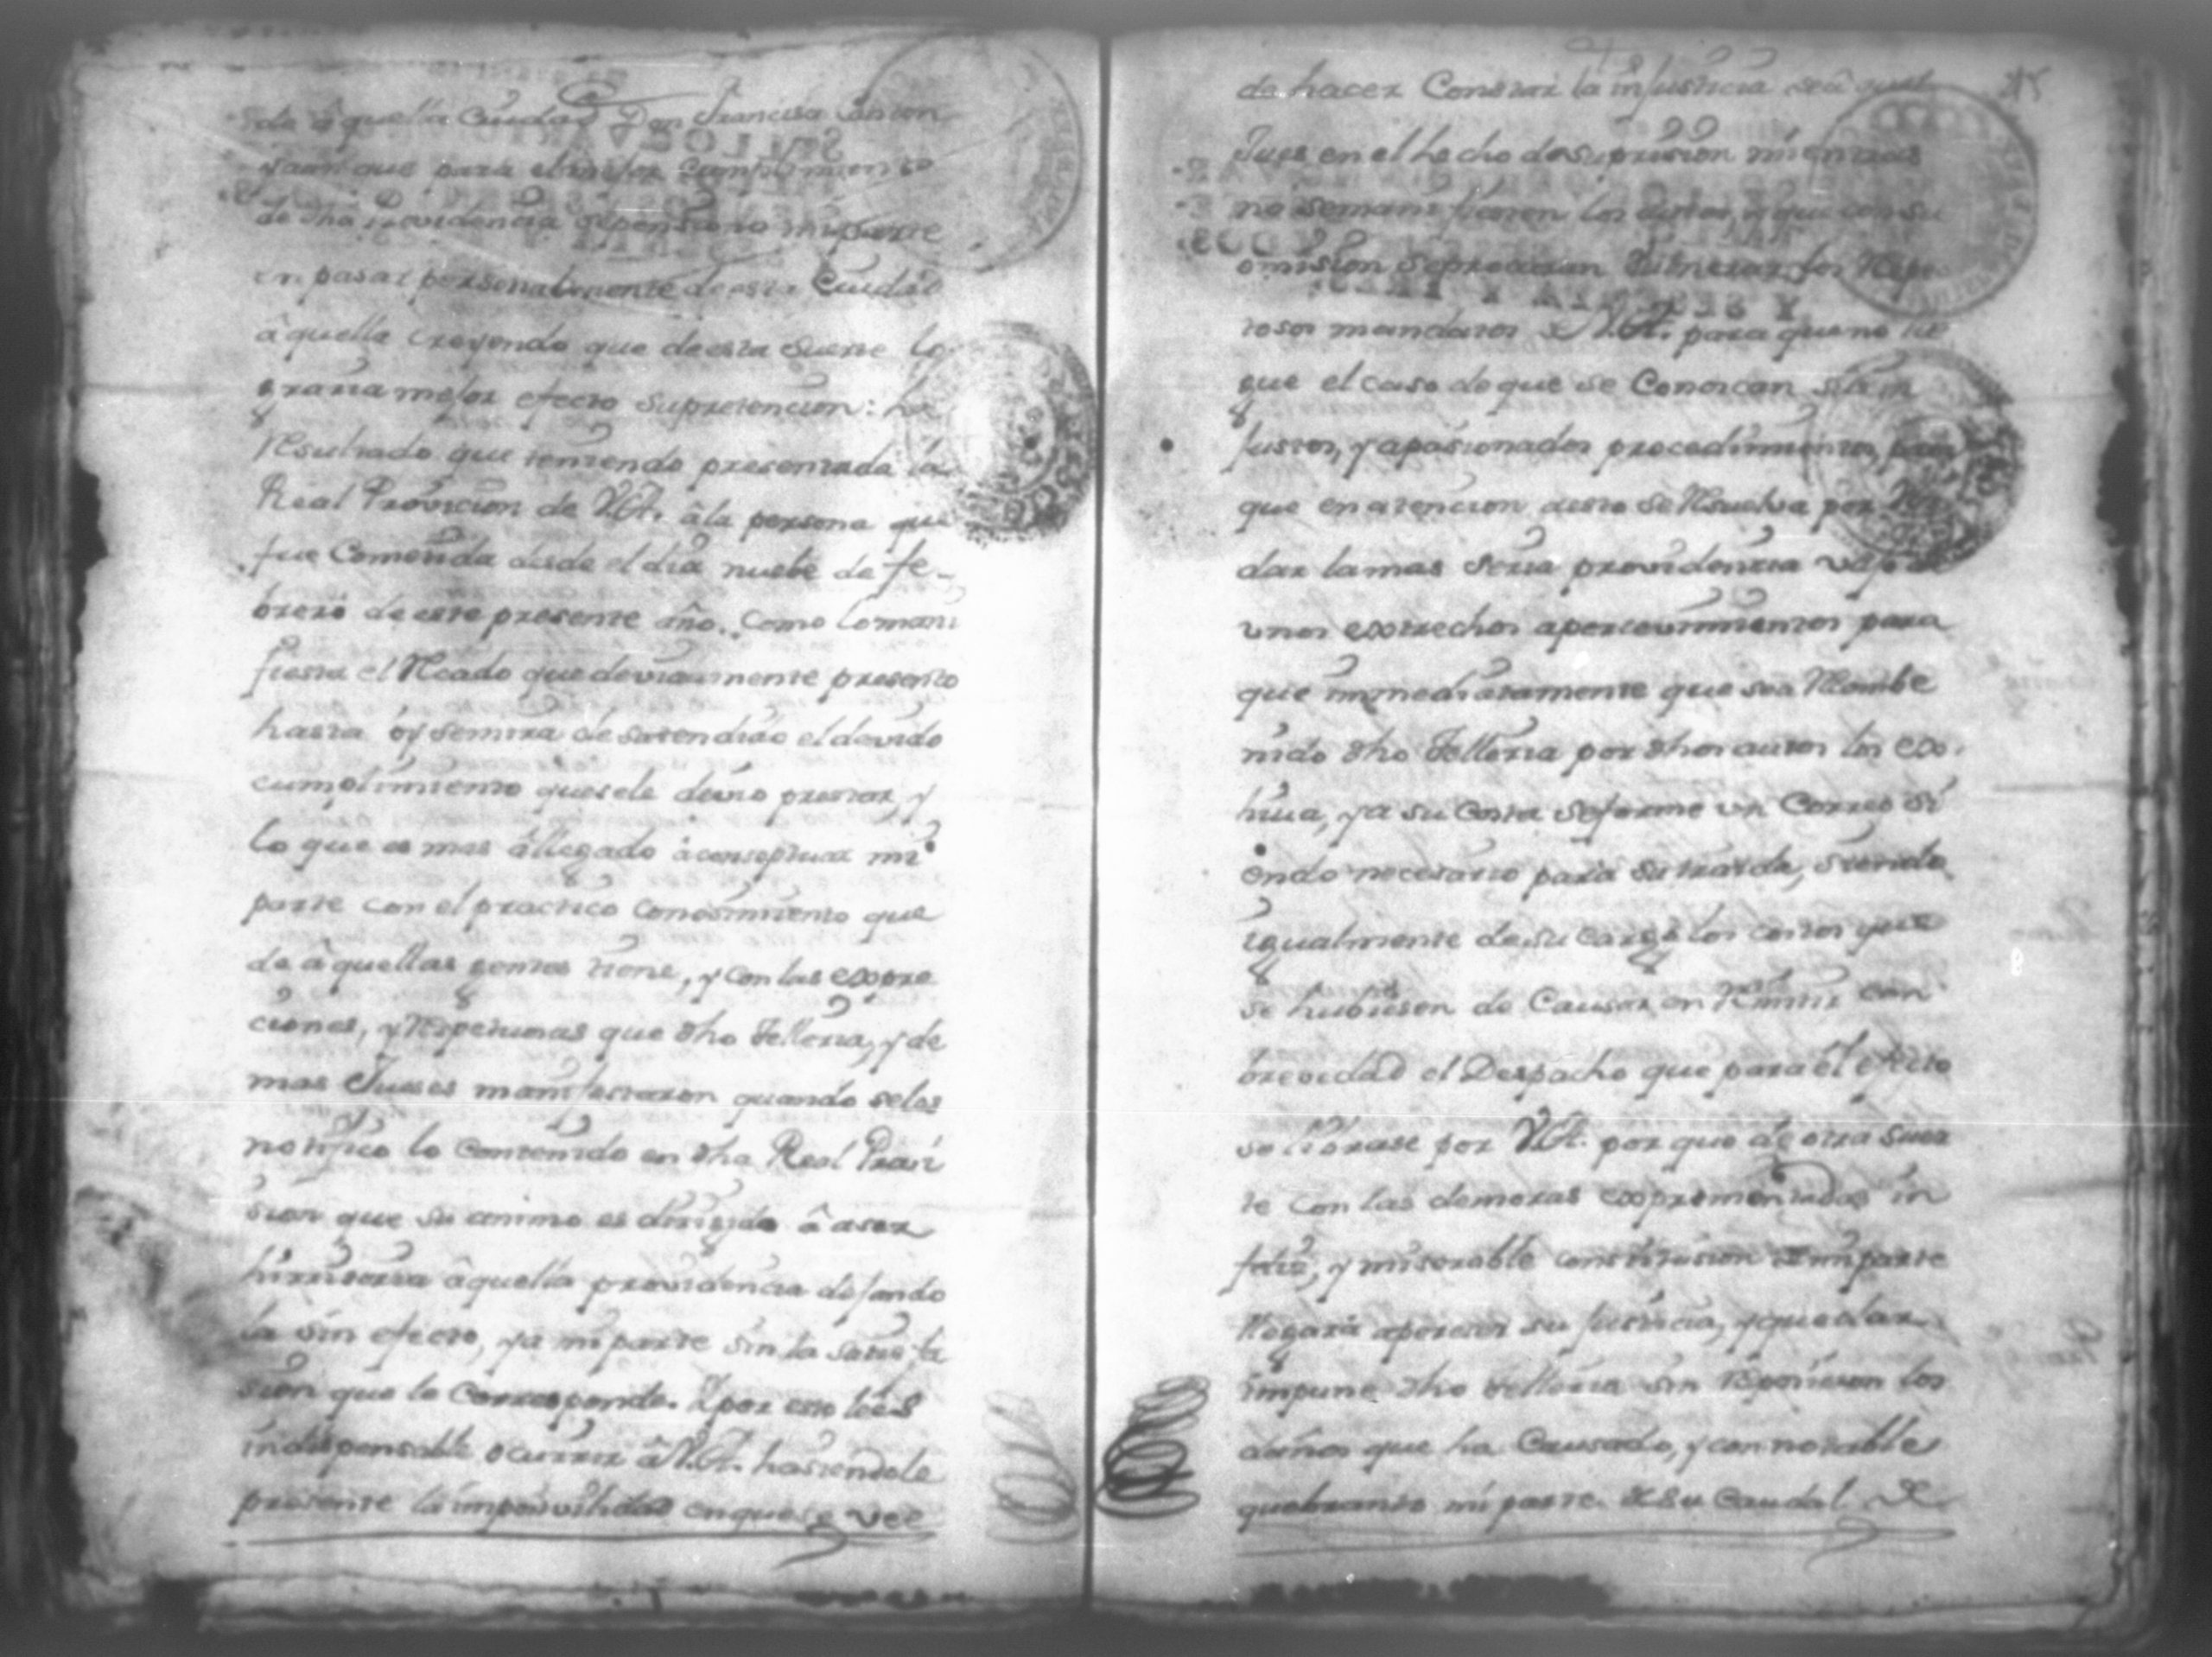 de aquella Ciudad Don Francisco
y aun que para el mejor cumplimiento
de dha providencia se pensiono mi parte
en pasar personalmente de esta Ciudad
â quella creyendo que de esta suerte lo
graria mejor efecto su pretencion: ha
resultado que teniendo presentada la
Real Provicion de V.A. â la persona que
fue Cometida desde el dia nuebe de fe-
brero de este presente año. Como lo mani
fiesta el Rcado que devidamente presento
hasta oy se mira desatendido el devido
cumplimiento que se le devio prestar, y
lo que es mas âllegado â conseptuar mi
parte con el practico conosimiento que
de â quellas gentes tiene, y con las expre
ciones, y Repetuosas que dho Telleria, y de
mas Jueses manifestaron quando se les
notifico lo Contenido en dha Real Provi
sion que su animo es dirigido â aser
hirrisoria âquella providencia dejando
la sin efecto, ya mi parte sin la satisfa
sion que le Corresponde. Y por esto le es
indispensable ocurrir â V.A. hasiendole
presente la imposivilidad en que se vee
de hacer Constar la injusticia de aquel
Jues en el hecho de su pricion mientras
no se manifiesten los autos, y que con su
omision se procuran vulnerar los Repe
tosos mandatos de V.A. para que no lle
gue el caso de que se Conoscan sus in
justos, y apasionados procedimientos, para
que en atencion desto se Resuelva por V.A.
dar la mas seria providencia vajo de
unos extrechos apercevimientos para
que immediatamente que sea Rconbe
nido dho Telleria por dhos autos los ex-
hiva, ya su Costa se forme un Correo si
endo necesario para su traida, siendo
igualmente de su cargo los costos que
se hubiesen de Causar en Rmitir con
brevedad el Despacho que para el efecto
se librase por V.A. por que de otra suer
te con las demoras exprementadas in
felis, y miserable constitusion de mi parte
llegara a perder su justicia, y quedar
impune dho Telleria sin Reponer los
daños que ha Causado, y con notable
quebranto mi parte de su Caudal de